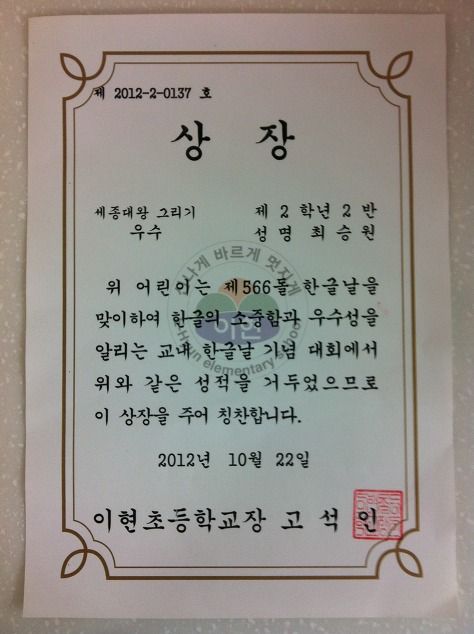 제 2012-2-0137 호
상 장
세종대왕 그리기 제 2 학년 2 반
우수 성 명 최 승 원
신나게 바르게 멋지게
위 어린이는 제566돌 한글날을
맞이하여 한글의 소중함과 우수성을
이현
알리는 교내 한글날 기념 대회에서
elementary school
위와 같은 성적을 거두었으므로
이 상장을 주어 칭찬합니다.
2012년 10월 22일
이현초등학교장 고 석 인